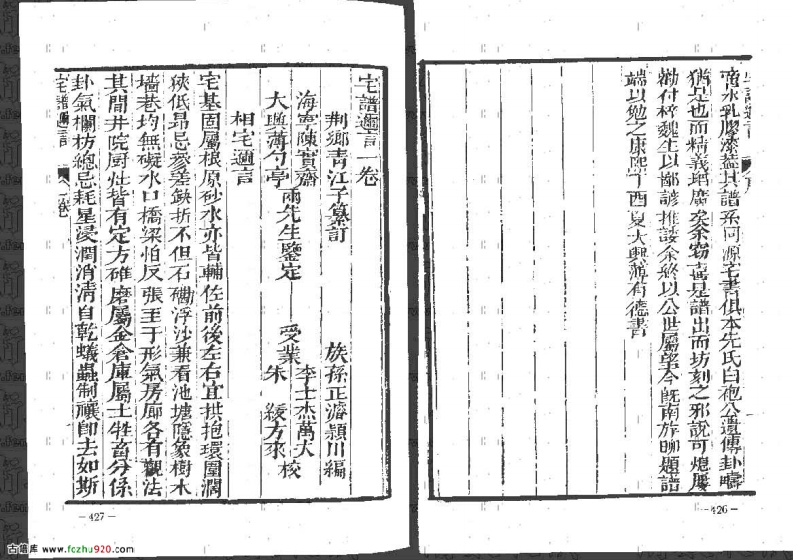 啻水乳膠漆葢其譜系河源宅書俱本先氏白砲公遺傳卦疇
猶是也而精義増廣矣余竊喜是譜出而坊刻之邪說可熄屢
勸付梓魏生以鄙諺推諉余終以公世屬望今既南旋聊題譜
端以勉之康熙丁酉夏大興薄有德書
—426—
宅譜邇言一卷
荆鄉青江子纂訂 族孫正濬頴川編
海寧陳實齋 李士杰萬大
大興薄勺亭 兩先生鑒定 受業 朱 綬方來 校
相宅邇言
宅基固屬根原砂水亦皆輔佐前後左右宜拱抱環圍濶
狹低昂忌參差缺折不但石磡浮沙兼看池塘隱象樹木
墻巷均無礙水口橋梁怕反張至于形氣房廊各有觀法
其間井院厨灶皆有定方碓磨屬金倉庫屬土牲畜分係
卦氣欄枋總忌耗星浸潤消淸自乾蟻蟲制禳卽去如斯
宅譜邇言 一卷
—427—
古籍库 www.fczhu920.com